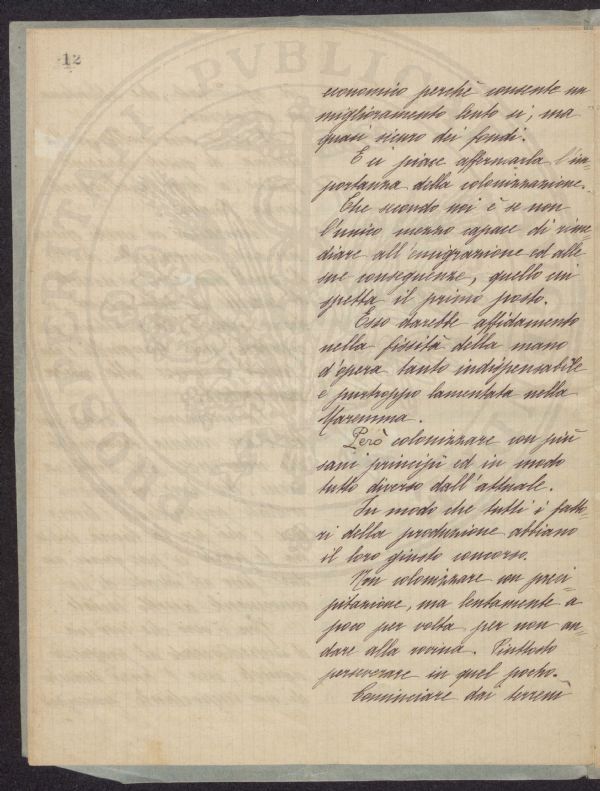 12
economico perchè consente un
miglioramento lento sì, ma
quasi sicuro dei fondi.
E ci piace affermarla l'im=
portanza della colonizzazione.
Che secondo noi è se non
l'unico mezzo capace di rime=
diare all'emigrazione ed alle
sue conseguenze, quello cui
spetta il primo posto.
Esso darebbe affidamento
nella fissità della mano
d'opera tanto indispensabile
e purtroppo lamentata nella
Maremma.
Però colonizzare con più
sani principii ed in modo
tutto diverso dall'attuale.
In modo che tutti i fatto=
ri della produzione abbiano
il loro giusto concorso.
Non colonizzare con preci=
pitazione, ma lentamente a
poco per volta per non an=
dare alla rovina. Piuttosto
perseverare in quel pocho.
Cominciare dai terreni